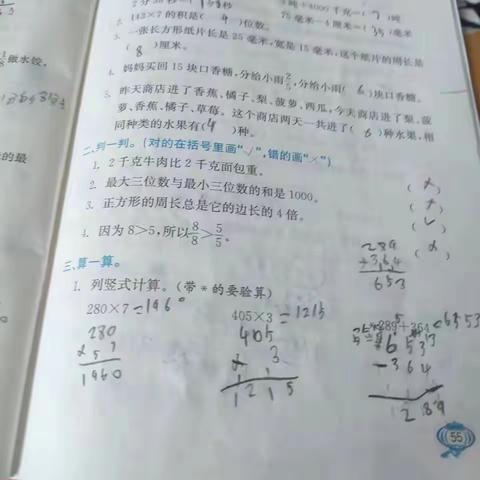 2. 143×7 的积是( 4 )位数。
75 毫米-4 厘米=( 35 )毫米
3. 一张长方形纸片长是 25 毫米,宽是 15 毫米,这个纸片的周长是
( 8 )厘米。
4. 妈妈买回 15 块口香糖,分给小雨2/5,分给小雨( 6 )块口香糖。
5. 昨天商店进了香蕉、橘子、梨、菠萝、西瓜,今天商店进了梨、菠
萝、香蕉、橘子、草莓。这个商店两天一共进了( 6 )种水果,相
同种类的水果有( 4 )种。
二、判一判。(对的在括号里画“√”,错的画“×”)
1. 2 千克牛肉比 2 千克面包重。 ( × )
2. 最大三位数与最小三位数的和是 1000。 ( × )
3. 正方形的周长总是它的边长的 4 倍。 ( √ )
4. 因为 8>5,所以8/8>5/5。 ( × )
289
+364
653
三、算一算。
1. 列竖式计算。(带 * 的要验算)
280×7=1960
405×3=1215
*289+364=653
280
× 7
1960
405
× 3
1215
653
-364
289
做水饺。
的最
55